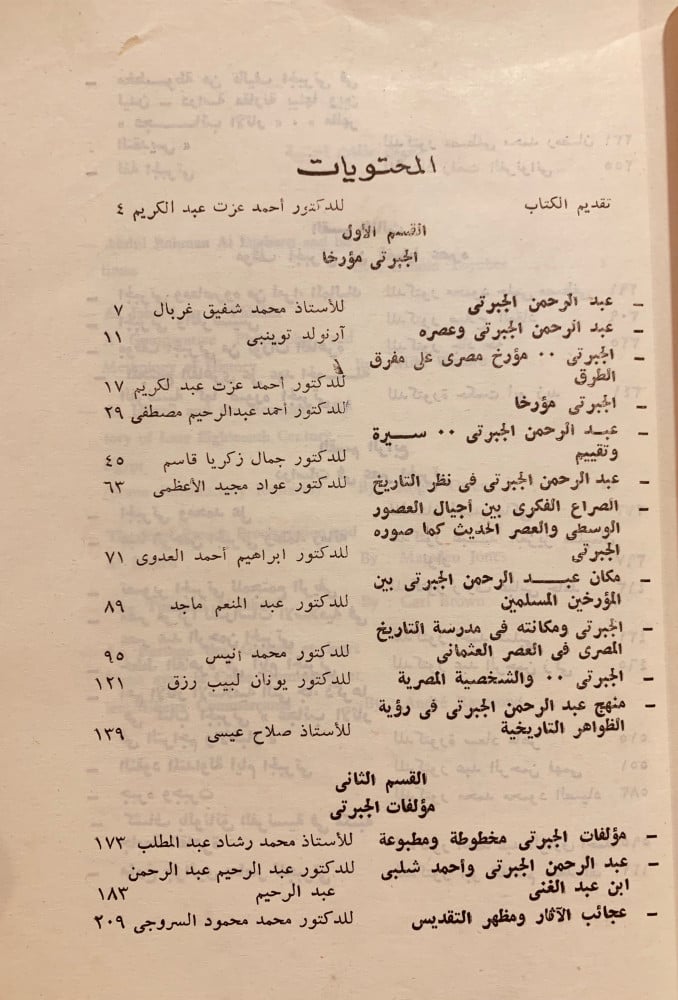 المحتويات
تقديم الكتاب للدكتور أحمد عزت عبد الكريم ٤
القسم الأول
الجبرتى مؤرخا
– عبد الرحمن الجبرتى للأستاذ محمد شفيق غربال ٧
– عبد الرحمن الجبرتى وعصره آرنولد توينبى ١١
– الجبرتى ٠٠ مؤرخ مصرى على مفرق
الطرق للدكتور أحمد عزت عبد لكريم ١٧
– الجبرتى مؤرخا للدكتور أحمد عبدالرحيم مصطفى ٢٩
– عبد الرحمن الجبرتى ٠٠ سيرة
وتقييم للدكتور جمال زكريا قاسم ٤٥
– عبد الرحمن الجبرتى فى نظر التاريخ للدكتور عواد مجيد الأعظمى ٦٣
– الصراع الفكرى بين أجيال العصور
الوسطى والعصر الحديث كما صوره
الجبرتى للدكتور ابراهيم أحمد العدوى ٧١
– مكان عبد الرحمن الجبرتى بين
المؤرخين المسلمين للدكتور عبد المنعم ماجد ٨٩
– الجبرتى ومكانته فى مدرسة التاريخ
المصرى فى العصر العثمانى للدكتور محمد أنيس ٩٥
– الجبرتى ٠٠ والشخصية المصرية للدكتور يونان لبيب رزق ١٢١
– منهج عبد الرحمن الجبرتى فى رؤية
الظواهر التاريخية للأستاذ صلاح عيسى ١٣٩
القسم الثانى
مؤلفات الجبرتى
– مؤلفات الجبرتى مخطوطة ومطبوعة للأستاذ محمد رشاد عبد المطلب ١٧٣
– عبد الرحمن الجبرتى وأحمد شلبى للدكتور عبد الرحيم عبد الرحمن
ابن عبد الغنى عبد الرحيم ١٨٣
– عجائب الآثار ومظهر التقديس للدكتور محمد محمود السروجى ٢٠٩